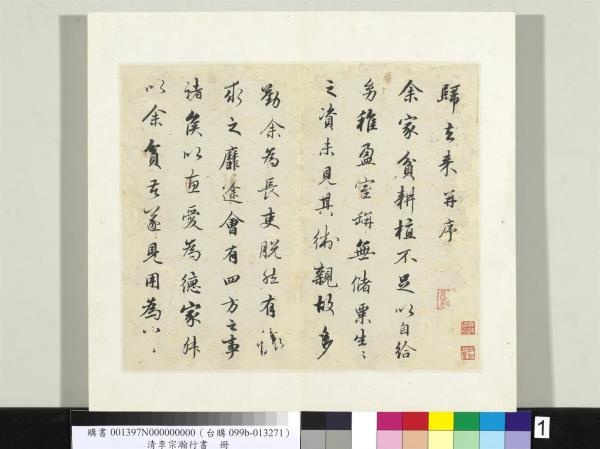 歸去来并序
余家貧耕植不足以自給
幼稚盈室缾無儲粟生〻
之資未見其術親故多
勸余為長吏脫然有懷
求之靡途會有四方之事
諸侯以惠愛為德家叔
以余貧苦遂見用為小〻
購書 001397N000000000（台購 099b-013271）
清李宗瀚行書 冊
1